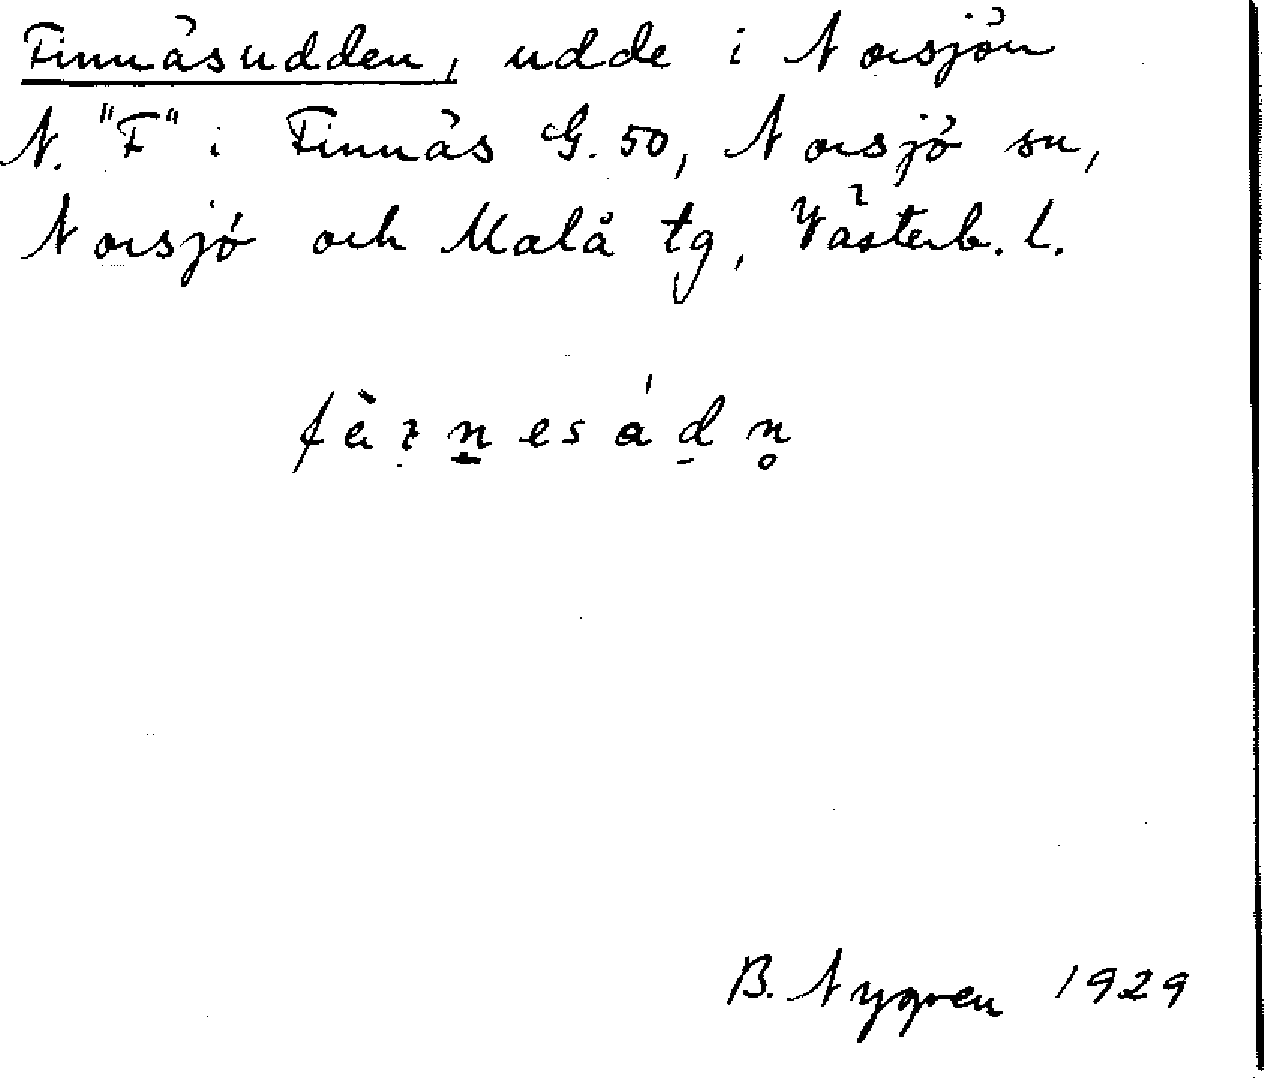 Finnäsudden, udde i Norsjön
N. "F" i Finnäs G. 50, Norsjö sn,
Norsjö och Malå tg, Västerb. l.
B. Nygren 1929